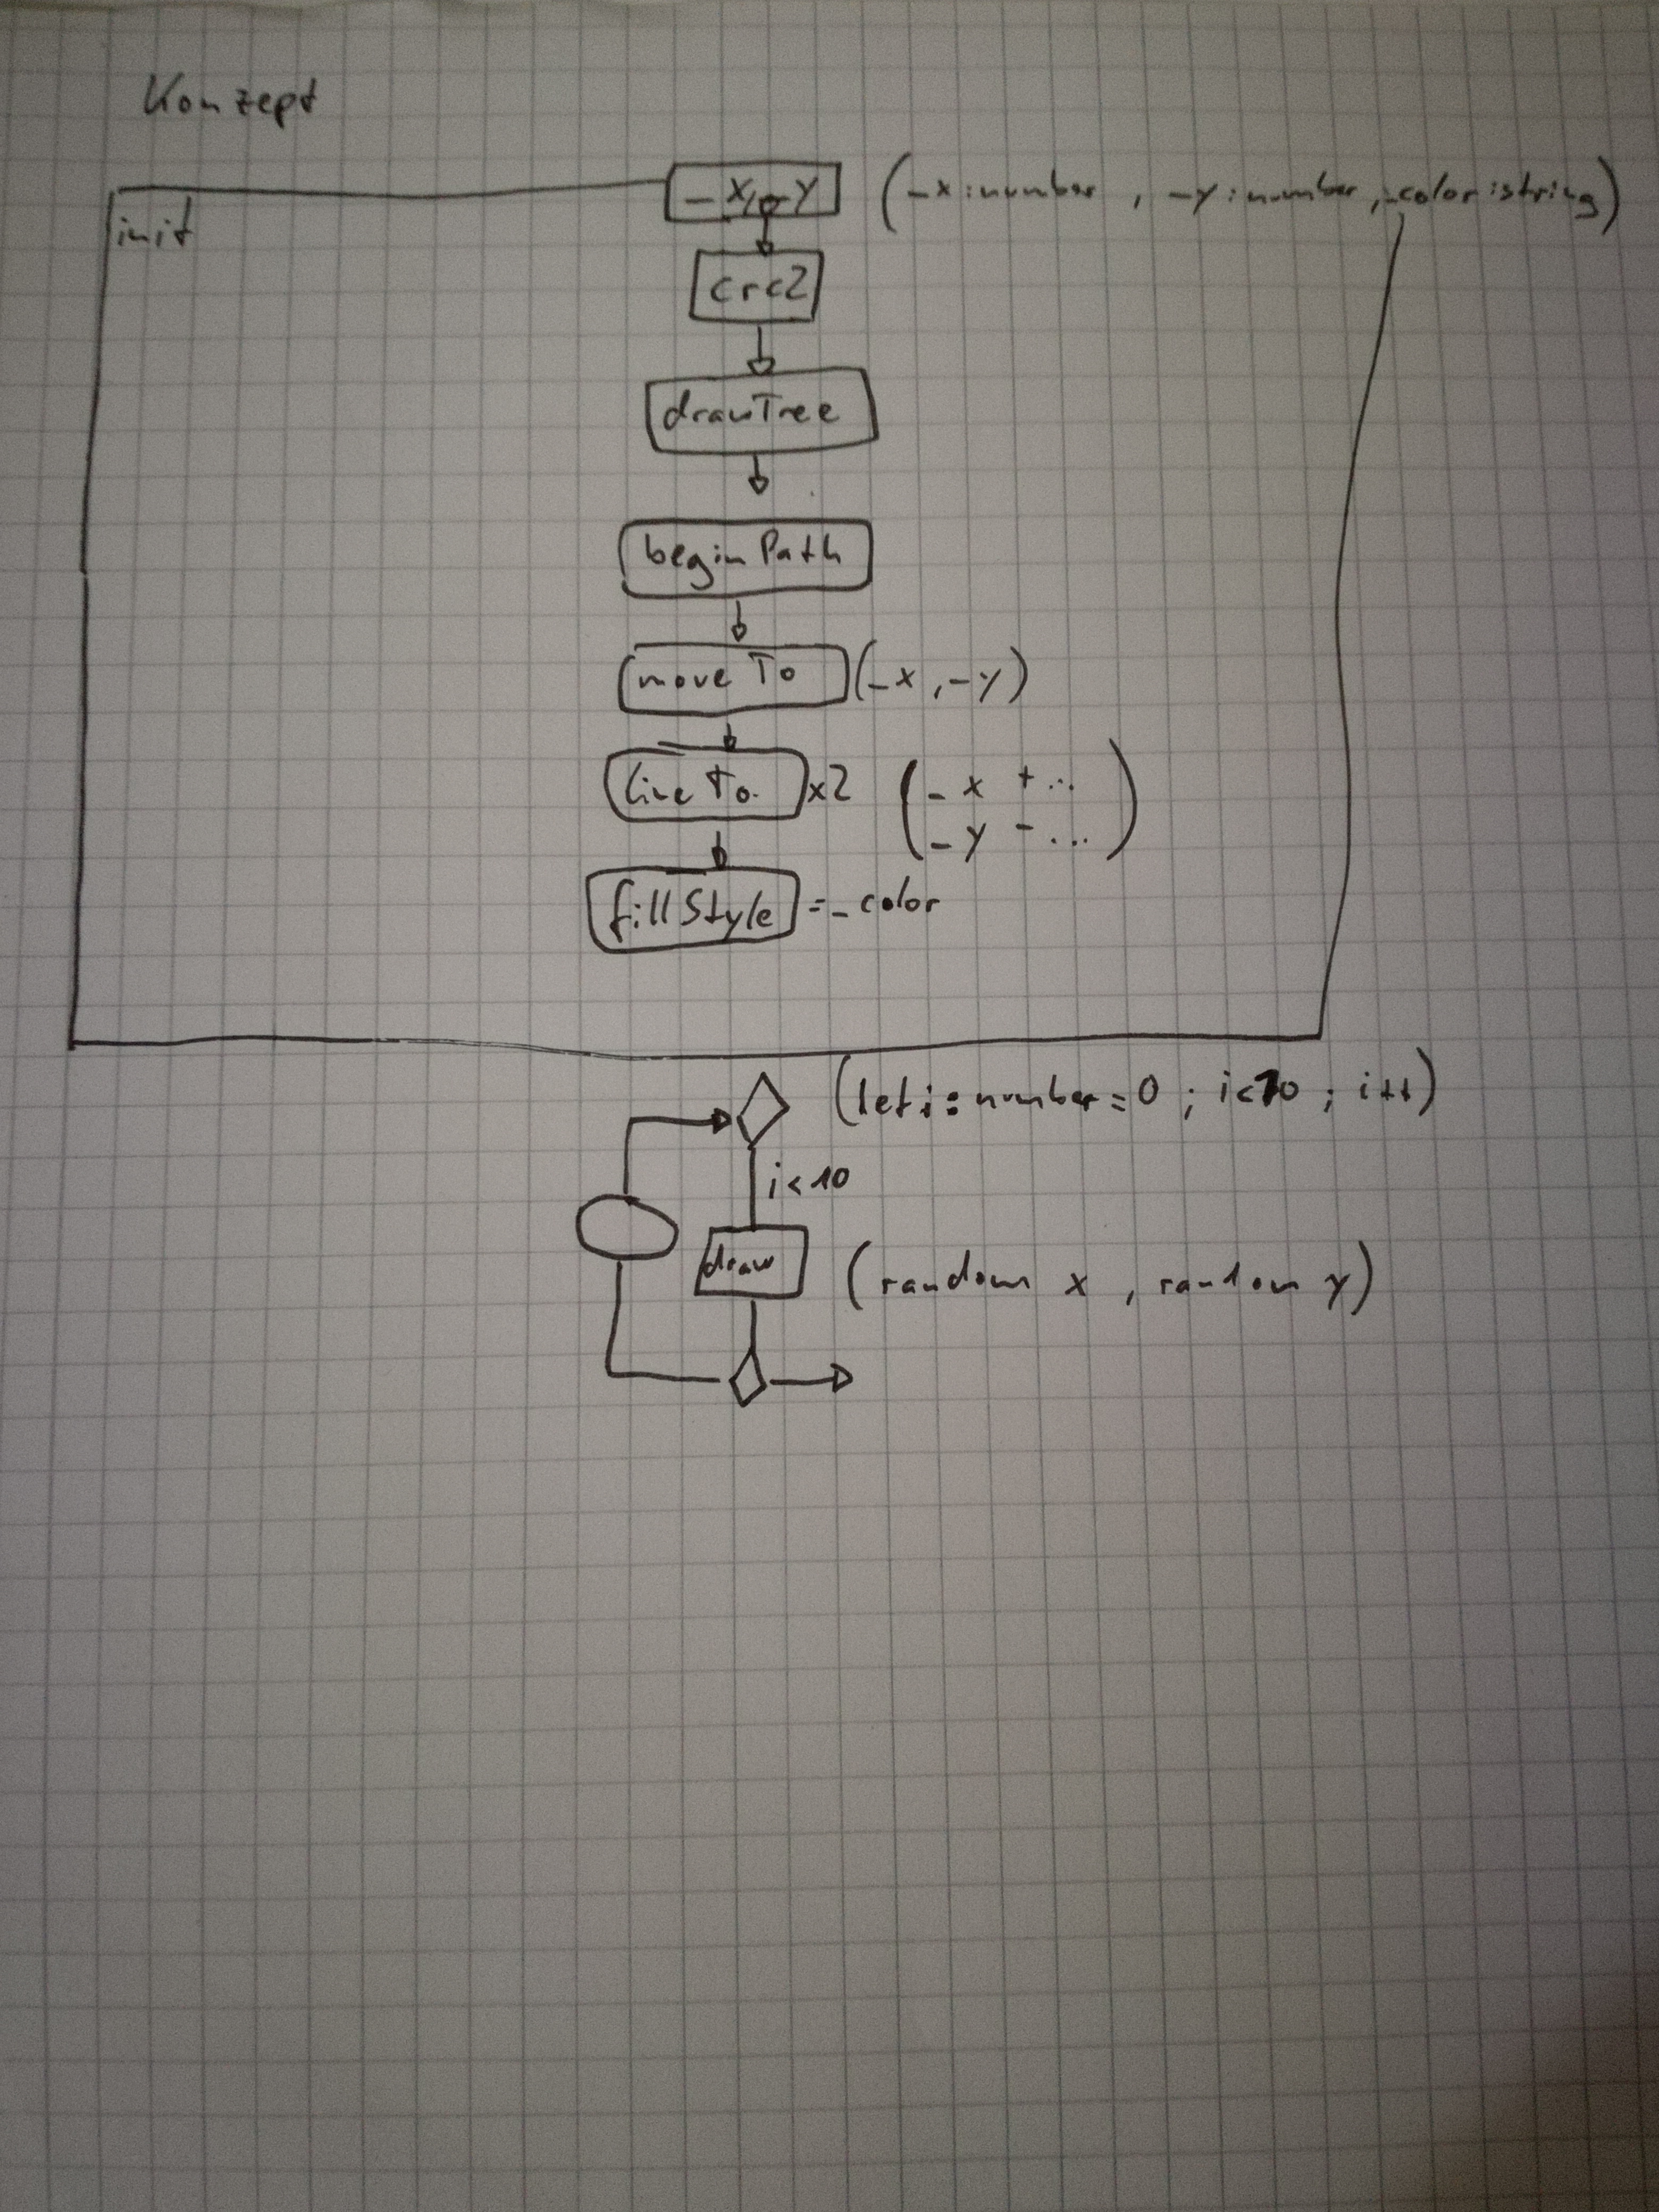 Konzept
init
_x, _y (_x:number, _y:number, _color:string)
crc2
drawTree
beginPath
moveTo (_x, _y)
lineTo x2 (_x + ...
_y - ...)
fillStyle = _color
(let i:number=0; i<10; i++)
i<10
draw (random x, random y)